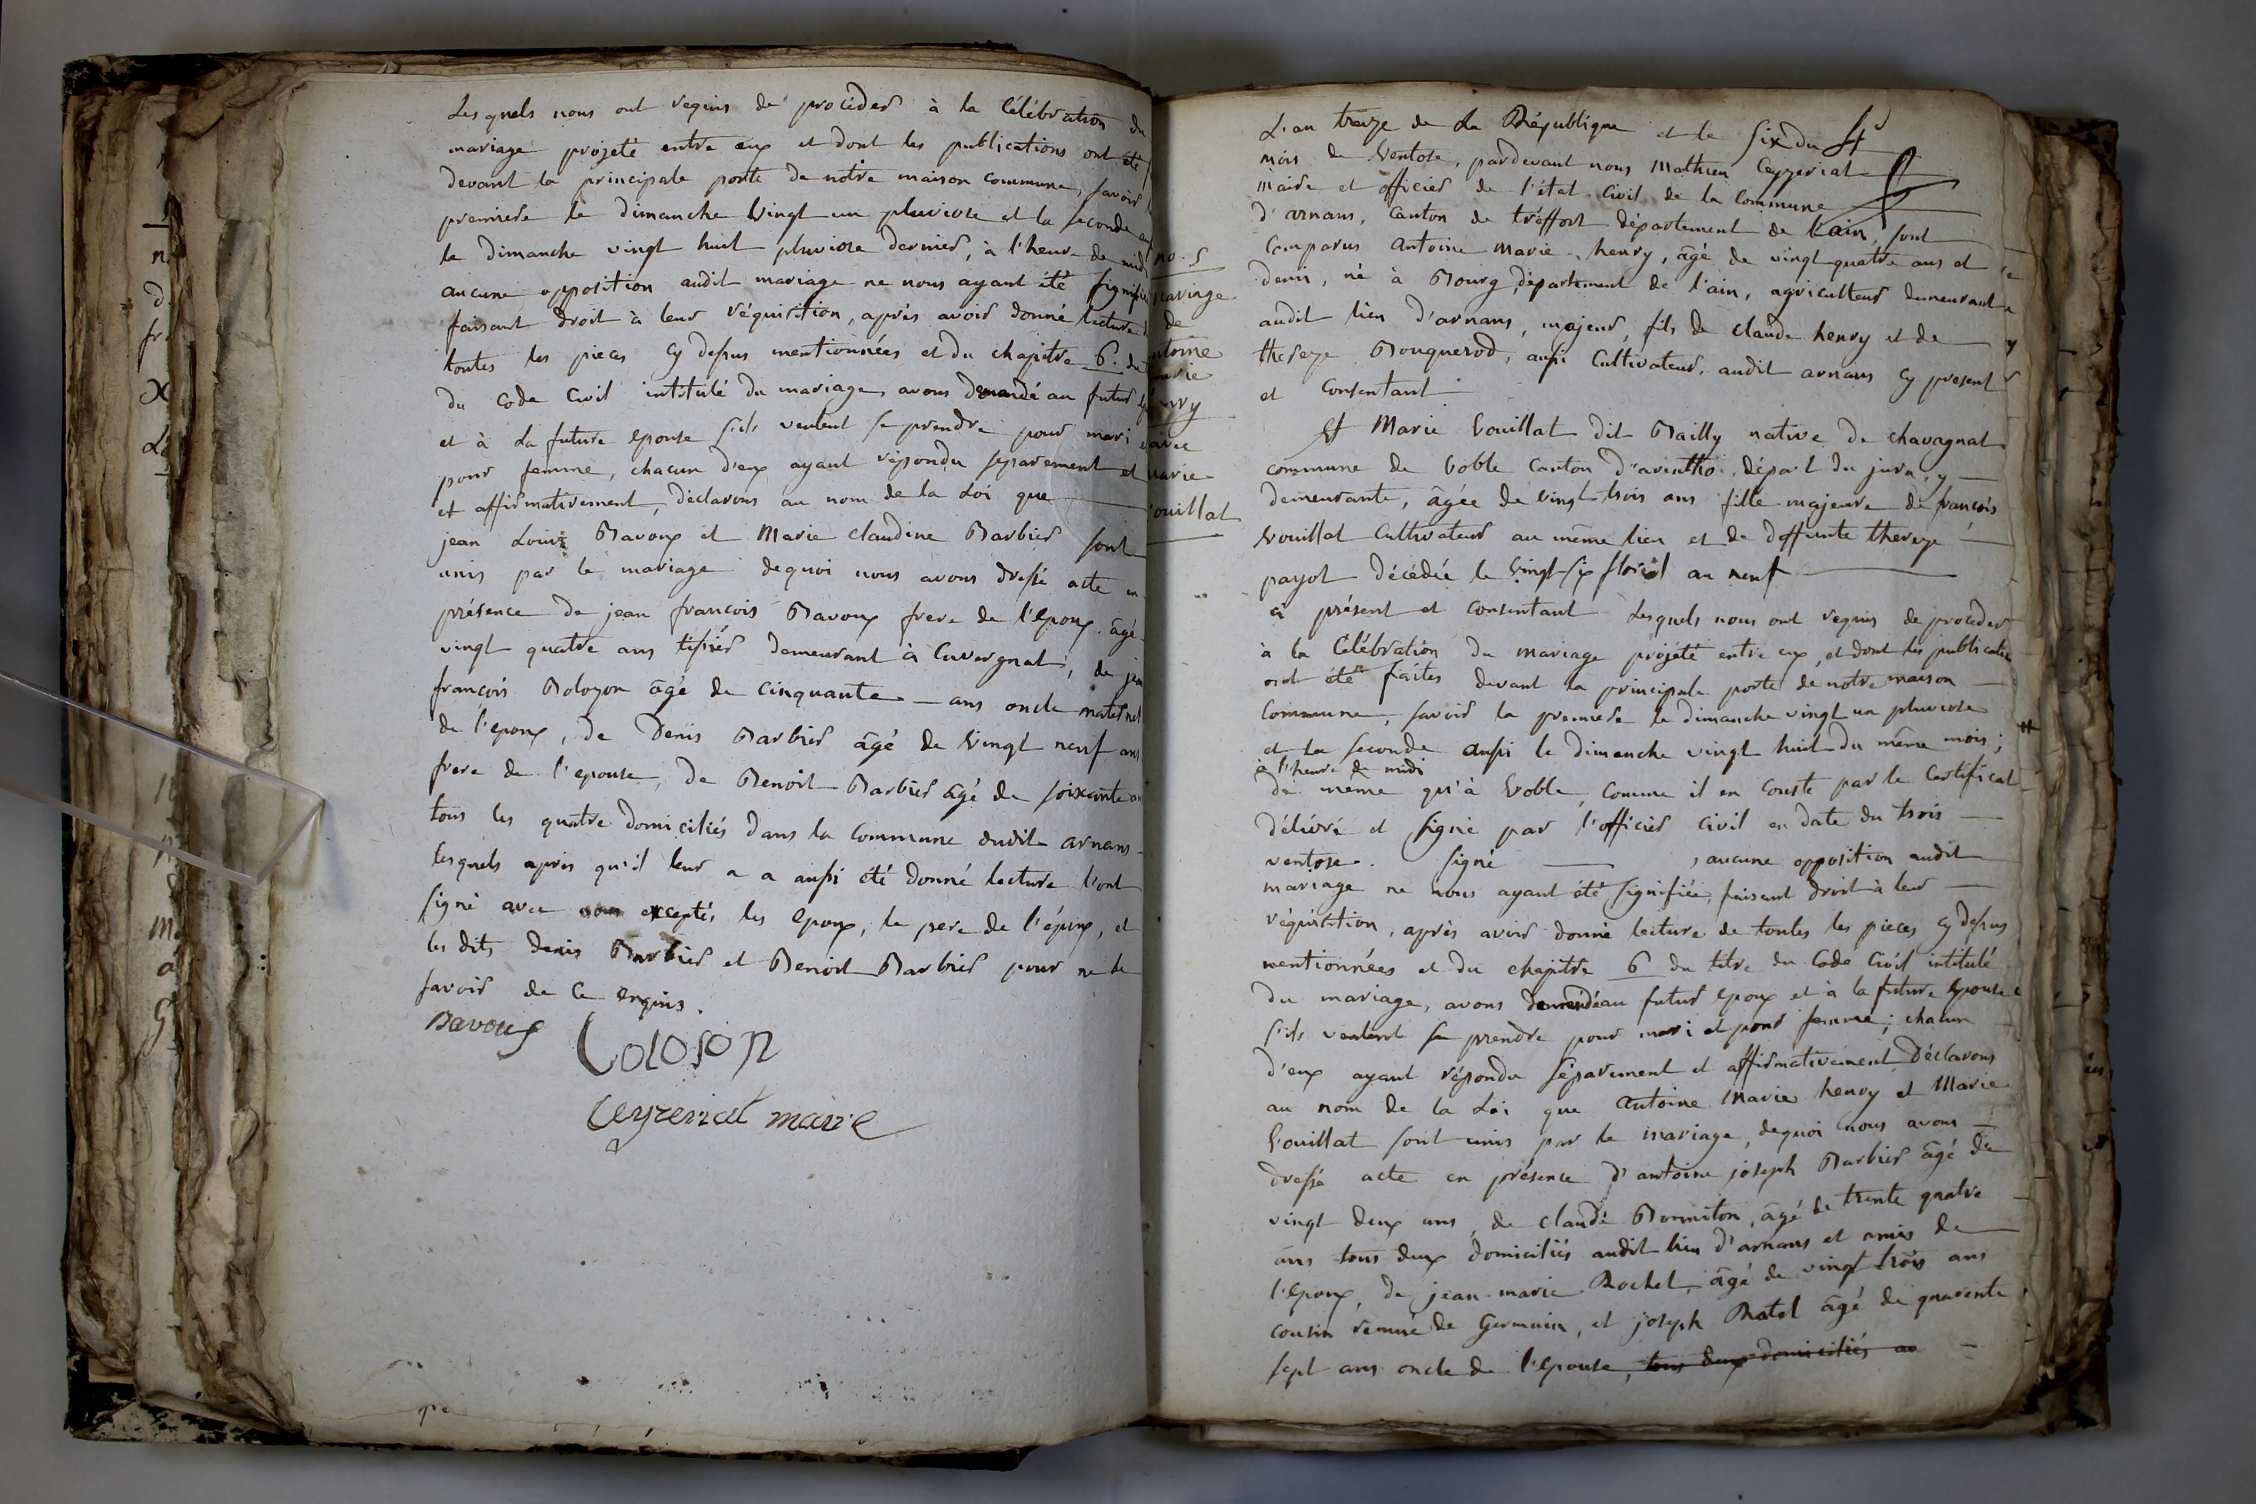 Lesquels nous ont requis de procéder à la Célébration du
mariage projeté entre eux et dont les publications ont été
devant la principale porte de notre maison commune, savoir
premiere le dimanche vingt un pluviose et la seconde
le dimanche vingt huit pluviose dernier, à l'heure de midi
aucune opposition audit mariage ne nous ayant été signifiée
faisant droit à leur réquisition, après avoir donné lecture
toutes les pieces cy dessus mentionnées et du chapitre 6. du
du code civil intitulé du mariage, avons demandé au futur
et à La future epouse s'ils veulent se prendre pour mari
pour femme, chacun d'eux ayant répondu separement et
et affirmativement, déclarons au nom de la Loi que
jean Louis Bavoux et Marie claudine Barbier sont
unis par le mariage dequoi nous avons dressé acte en
présence de jean françois Bavoux frere de l'epoux âgé
vingt quatre ans tissier demeurant à Cuvergnat, de jean
françois Bolozon âgé de cinquante ans oncle maternel
de l'epoux, de Denis Barbier âgé de vingt neuf ans
frere de l'epouse, de Benoit Barbier âgé de soixante ans
tous les quatre domiciliés dans la Commune dudit arnans
lesquels après qu'il leur a a aussi été donné lecture l'ont
signé avec nous exceptés les epoux, le pere de l'époux, et
les dits denis Barbier et Benoit Barbier pour ne le
savoir de ce enquis.
Bavoux Boloson
Ceyzeriat maire
no. 5
mariage
de
antoine
marie
henry
avec
marie
vouillat
L'an treize de La République et le six du
mois de Ventose, pardevant nous Mathieu Ceyzeriat
maire et officier de l'état civil de la Commune
d'arnans, Canton de tréffort département de l'ain, sont
Comparus antoine marie henry, âgé de vingt quatre ans et
demi, né à Bourg, département de l'ain, agriculteur demeurant
audit lieu d'arnans, majeur, fils de claude henry et de
thereze Bouquerod, aussi Cultivateur, audit arnans cy present
et Consentant
Et Marie vouillat dit Bailly native de chavagnat
commune de voble Canton d'arintho, départ du jura, y
demeurante, âgée de vingt trois ans fille majeure de françois
vouillat Cultivateur au même lieu et de deffunte thereze
payot décédée le vingt six floréal an neuf
ci présent et consentant Lesquels nous ont requis de proceder
à la Célébration du mariage projété entre eux, et dont les publications
ont été faites devant la principale porte de notre maison
Commune, savoir la premiere le dimanche vingt un pluviose
et la seconde aussi le dimanche vingt huit du même mois;
à l'heure de midi
de meme qu'à voble, comme il en conste par le Certificat
délivré et signé par l'officier civil en date du trois
ventose. signé , aucune opposition audit
mariage ne nous ayant été signifiée, faisant droit à leur
réquisition, après avoir donné lecture de toutes les pieces cy dessus
mentionnées et du chapitre 6 du titre du Code Civil intitulé
du mariage, avons demandé au futur epoux et à la future epouse
s'ils veulent se prendre pour mari et pour femme; chacun
d'eux ayant répondu séparement et affirmativement, déclarons
au nom de la Loi que antoine Marie henry et Marie
vouillat sont unis par le mariage, dequoi nous avons
dressé acte en présence d'antoine joseph Barbier âgé de
vingt deux ans, de claude Bonniton, âgé de trente quatre
ans tous deux domiciliés audit lieu d'arnans et amis de
l'epoux, de jean-marie Rochet, âgé de vingt trois ans
cousin remué de Germain, et joseph Ratel âgé de quarente
sept ans oncle de l'epouse, tous deux domiciliés au